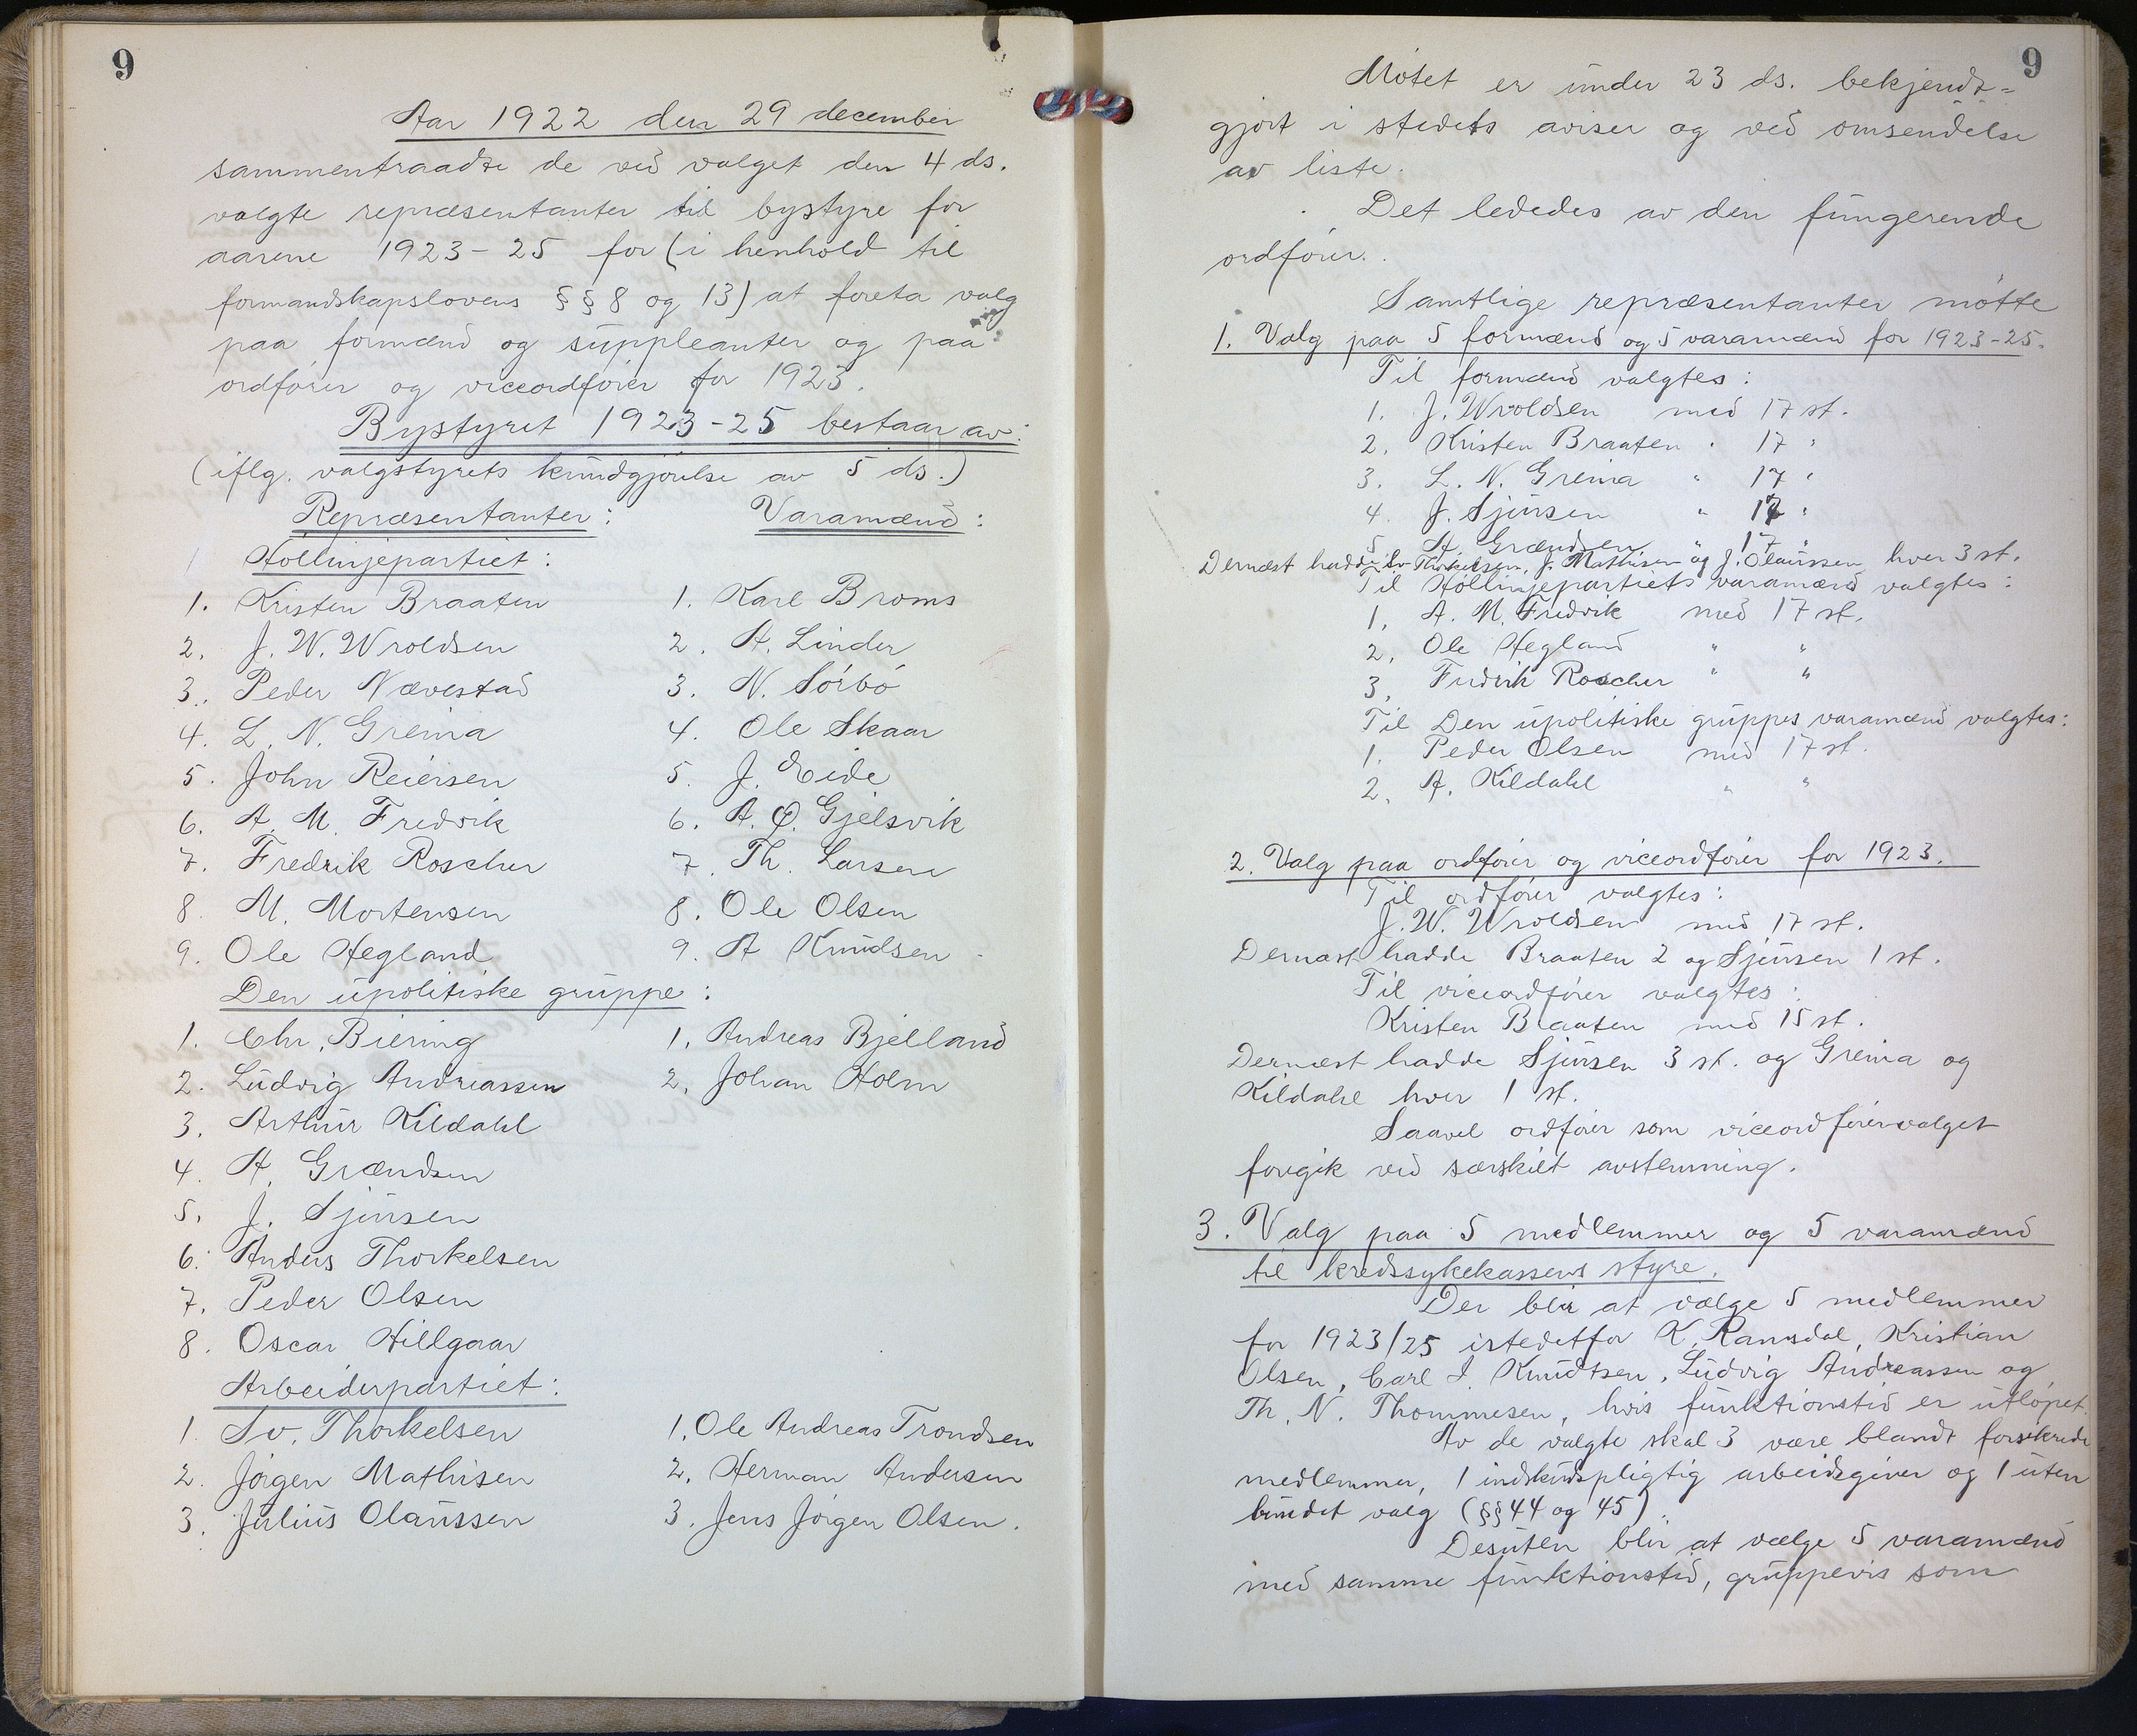 9
Aar 1922 den 29 december
sammentraadte de ved valget den 4 ds.
valgte repræsentanter til bystyre for
aarene 1923-25 for (i henhold til
formandskapslovens §§ 8 og 13) at foreta valg
paa formænd og suppleanter og paa
ordfører og viceordfører for 1923.
Bystyret 1923-25 bestaar av:
(iflg. valgstyrets kundgjørelse av 5 ds.)
Repræsentanter: Varamænd:
Høllinjepartiet:
1. Kristen Braaten 1. Karl Broms
2. J. W. Wroldsen 2. A. Linder
3. Peder Nævestad 3. N. Sørbø
4. L. N. Greina 4. Ole Skaar
5. John Reiersen 5. J. Eide
6. A. M. Fredvik 6. A. O. Gjelsvik
7. Fredrik Roscher 7. Th. Larsen
8. M. Mortensen 8. Ole Olsen
9. Ole Hegland 9. A Knudsen
Den upolitiske gruppe:
1. Chr. Biering 1. Andreas Bjelland
2. Ludvig Andreassen 2. Johan Holm
3. Arthur Kildahl
4. A. Grændsen
5. J. Sjursen
6. Anders Thorkelsen
7. Peder Olsen
8. Oscar Hillgaar
Arbeiderpartiet:
1. Sv. Thorkelsen 1. Ole Andreas Trondsen
2. Jørgen Mathisen 2. Herman Andersen
3. Julius Olaussen 3. Jens Jørgen Olsen.
9
Møtet er under 23 ds. bekjendt=
gjort i stedets aviser og ved omsendelse
av liste.
Det lededes av den fungerende
ordfører.
Samtlige repræsentanter møtte
1. Valg paa 5 formænd og 5 varamænd for 1923-25.
Til formænd valgtes:
1. J. Wroldsen med 17 st.
2. Kristen Braaten " 17 "
3. L. N. Greina " 17 "
4. J. Sjursen " 17 "
5. A. Grændsen " 17 "
Dernæst hadde Sv. Thorkelsen, J. Mathisen og J. Olaussen hver 3 st.
Til Høllinjepartiets varamænd valgtes:
1. A. M. Fredvik med 17 st.
2. Ole Hegland " "
3. Fredrik Roscher " "
Til Den upolitiske gruppes varamænd valgtes:
1. Peder Olsen med 17 st.
2. A. Kildahl " "
2. Valg paa ordfører og viceordfører for 1923.
Til ordfører valgtes:
J. W. Wroldsen med 17 st.
Dernæst hadde Braaten 2 og Sjursen 1 st.
Til viceordfører valgtes:
Kristen Braaten med 15 st.
Dernæst hadde Sjursen 3 st. og Greina og
Kildahl hver 1 st.
Saavel ordfører som viceordførervalget
foregik ved særskilt avstemning.
3. Valg paa 5 medlemmer og 5 varamænd
til kredssykekassens styre.
Der blir at vælge 5 medlemmer
for 1923/25 istedetfor K. Ramsdal, Kristian
Olsen, Carl I. Knudtsen, Ludvig Andreassen og
Th. N. Thommesen, hvis funktionstid er utløpet.
Av de valgte skal 3 være blandt forsikrede
medlemmer, 1 indskudspligtig arbeidsgiver og 1 uten
bundet valg (§§ 44 og 45).
Desuten blir at vælge 5 varamænd
med samme funktionstid, gruppevis som